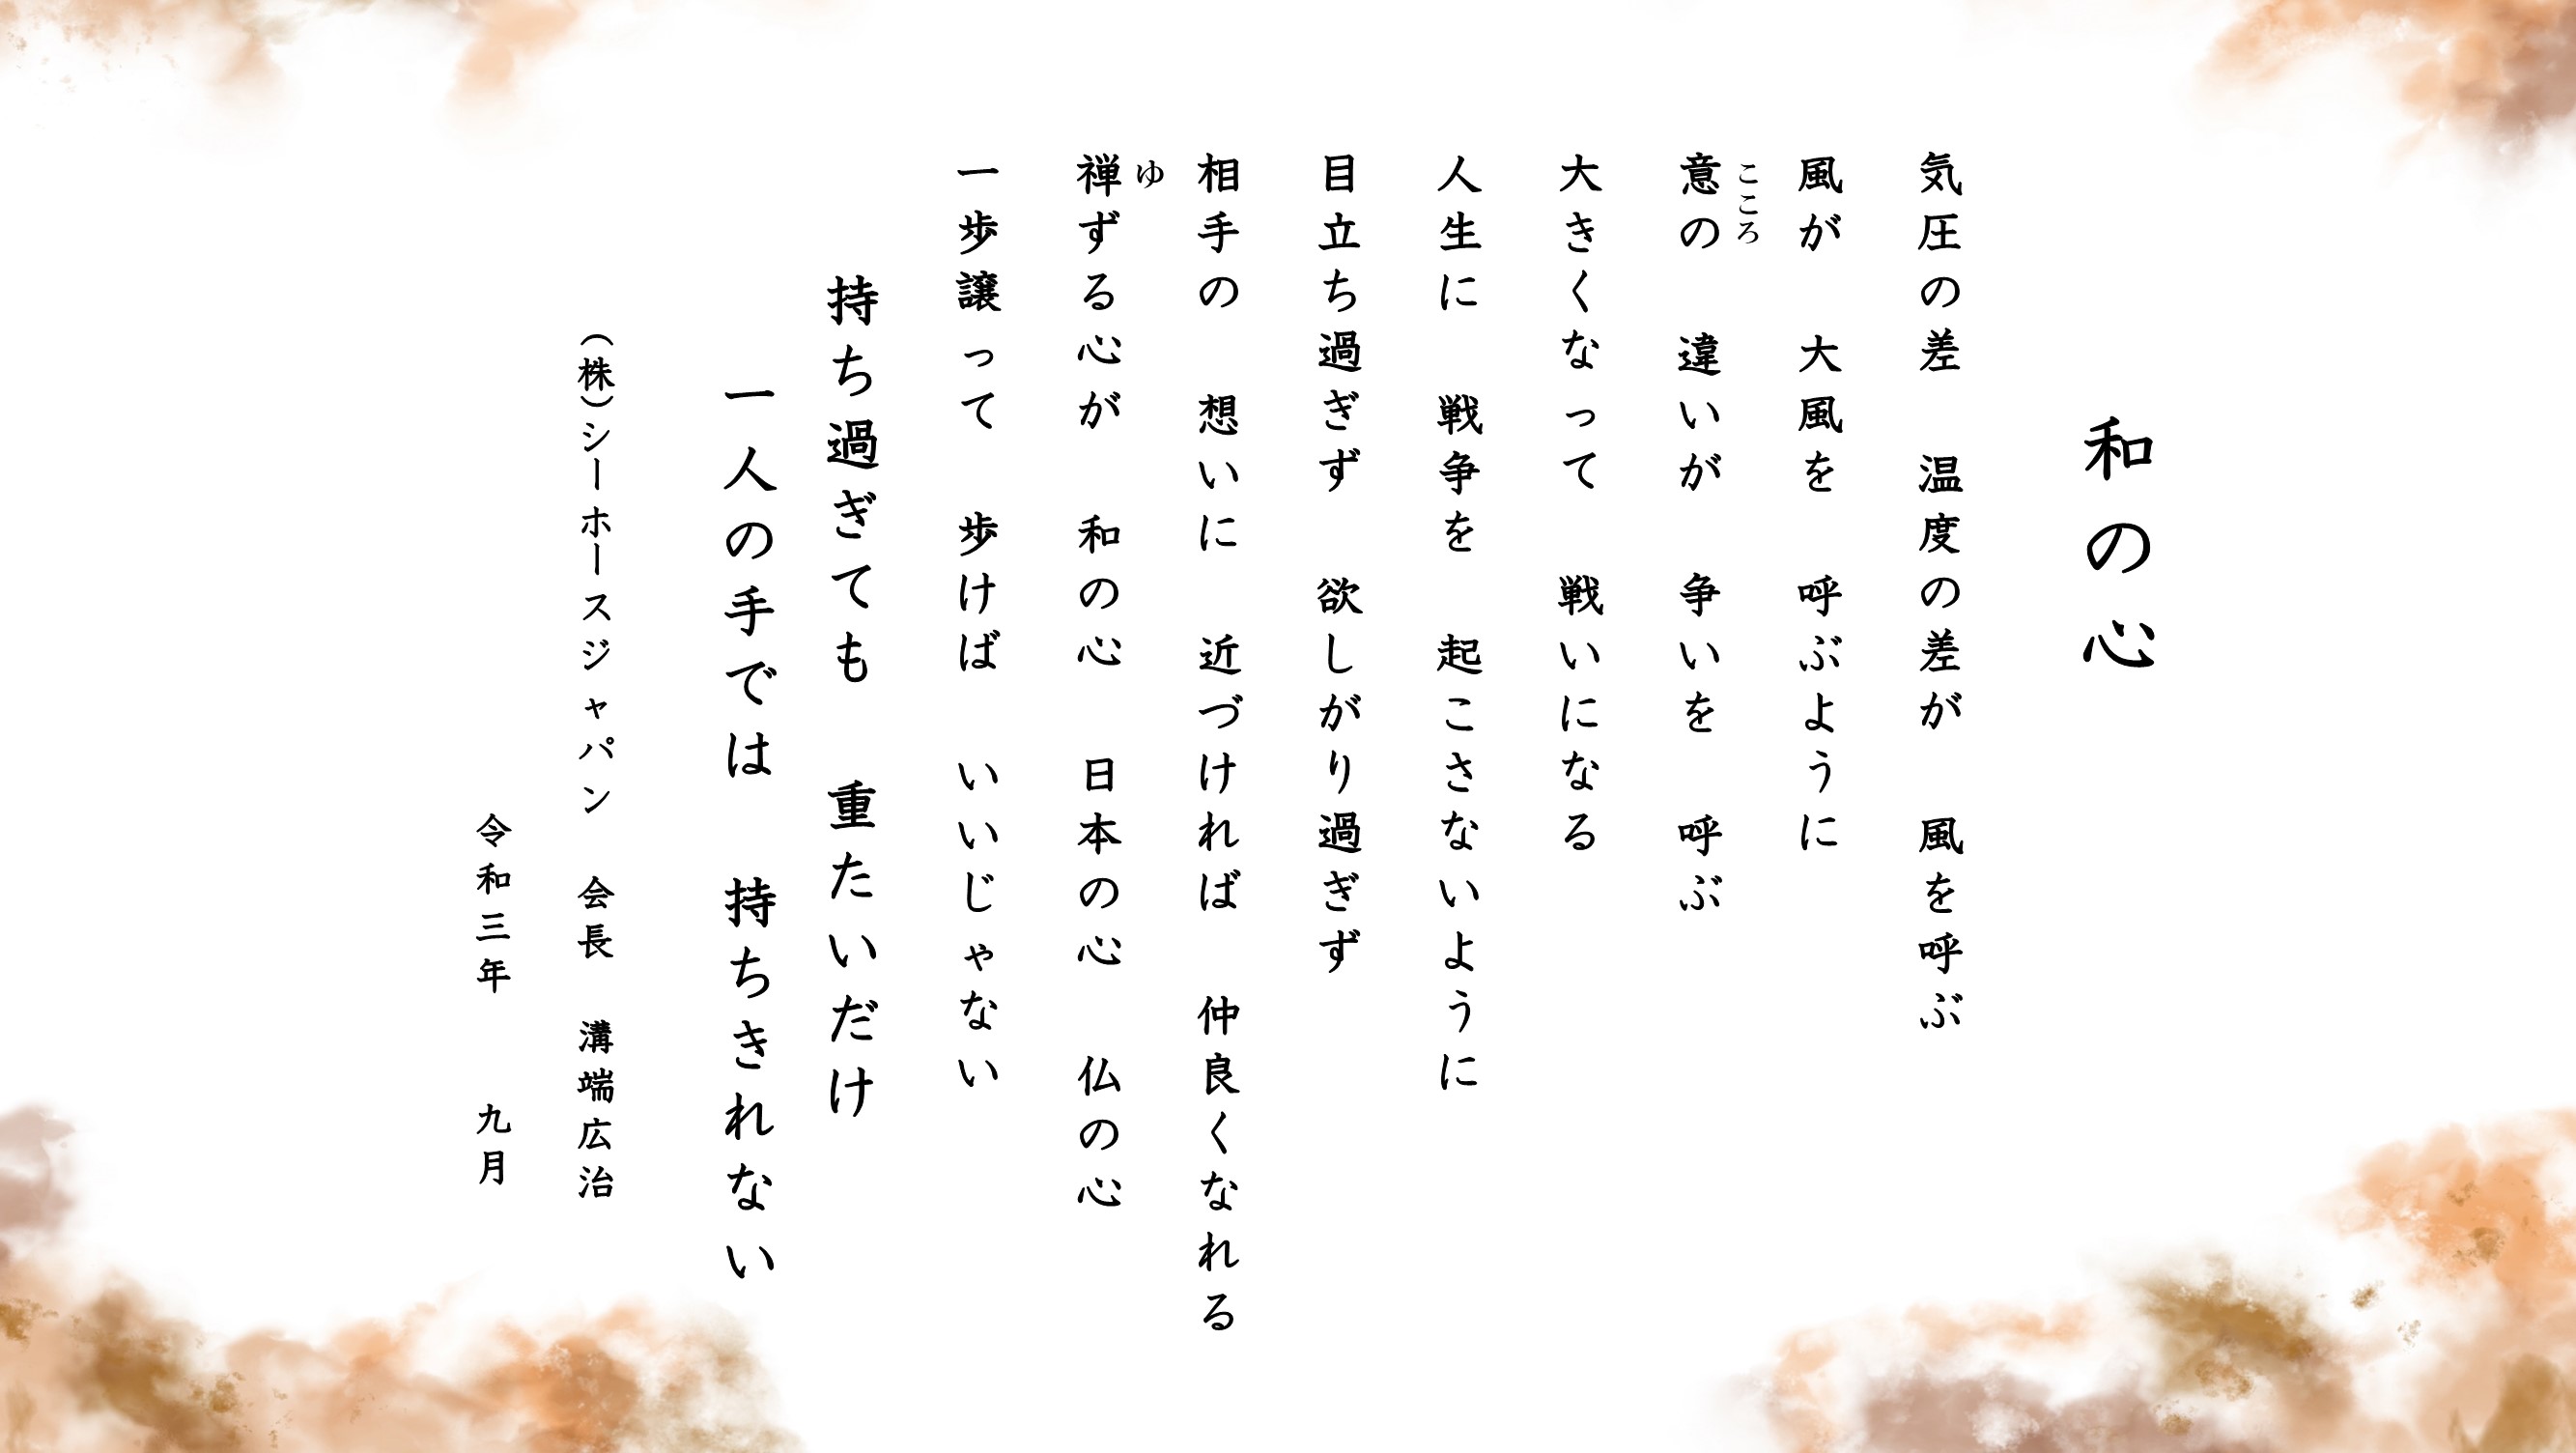 和の心
気圧の差　温度の差が　風を呼ぶ
風が　大風を　呼ぶように
こころ
意の　違いが　争いを　呼ぶ
大きくなって　戦いになる
人生に　戦争を　起こさないように
目立ち過ぎず　欲しがり過ぎず
相手の　想いに　近づければ　仲良くなれる
ゆ
禅ずる心が　和の心　日本の心　仏の心
一歩譲って　歩けば　いいじゃない
持ち過ぎても　重たいだけ
一人の手では　持ちきれない
（株）シーホースジャパン　会長　溝端広治
令和三年　九月